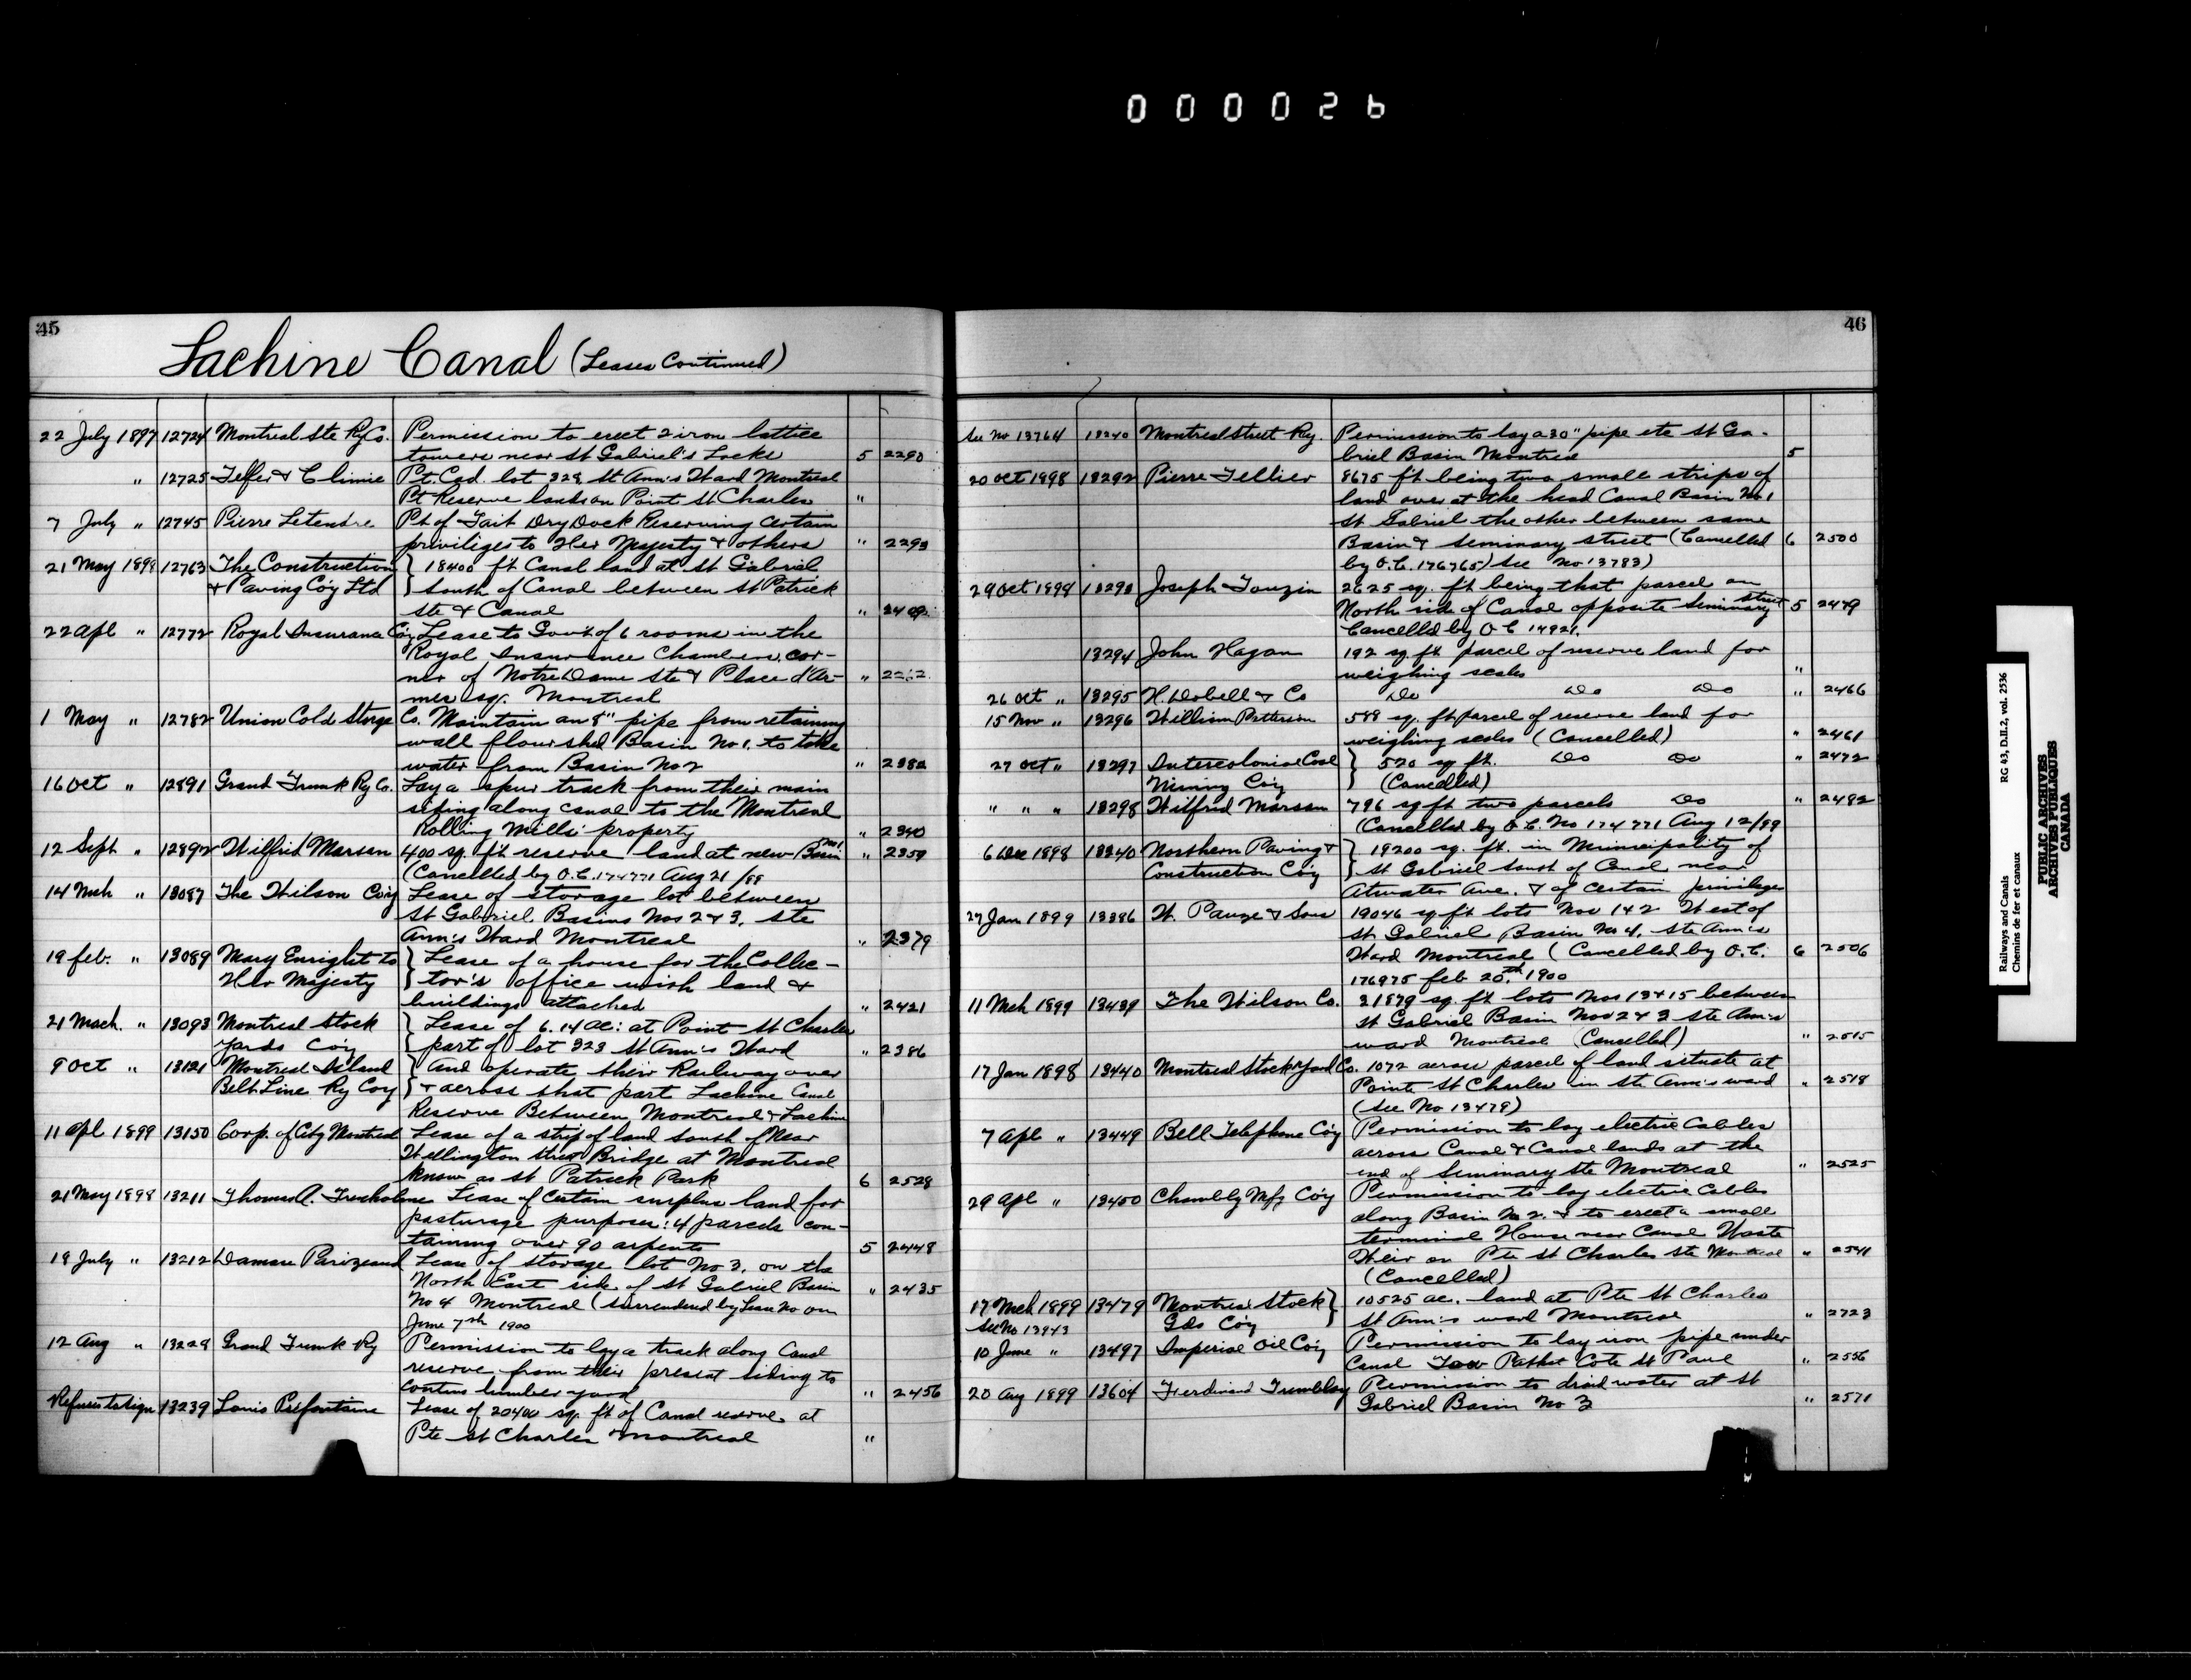 000026
45
Lachine Canal (Leases Continued)
22 July 1897 12724 Montreal Ste Ry Co. Permission to erect 2 iron lattice
towers near St Gabriel's Locks 5 2290
" 12725 Telfer & Climie Pt. Cad. lot 328 St Ann's Ward Montreal
Pt Reserve lands on Point St Charles "
7 July " 12745 Pierre Letendre Pt of Tait Dry Dock Reserving certain
priviliges to Her Majesty & others " 2293
21 May 1898 12763 The Construction } 18400 ft Canal land at St Gabriel
& Paving Co'y Ltd } South of Canal between St Patrick
Ste & Canal " 2409
22 Apl " 12772 Royal Insurance Co'y Lease to Gov't of 6 rooms in the
Royal Insurance Chambers, cor-
ner of Notre Dame Ste & Place d'Ar-
mes sq. Montreal "
1 May " 12782 Union Cold Storge Co. Maintain an 8" pipe from retaining
wall flour shed Basin No 1. to take
water from Basin No 2 " 2382
16 Oct " 12891 Grand Trunk Ry Co. Lay a spur track from their main
siding along canal to the Montreal
Rolling Mills' property " 2340
12 Sept " 12892 Wilfrid Marsan 400 sq. ft reserve land at new Basin No 1 " 2359
(Cancelled by O.C. 174771 Aug 21/99
14 Mch " 13087 The Wilson Co'y Lease of storage lot between
St Gabriel Basins Nos 2 & 3, Ste
Ann's Ward Montreal " 2379
19 feb. " 13089 Mary Enright to } Lease of a house for the Collec-
Her Majesty } tor's office with land &
buildings attached " 2421
21 Mach. " 13093 Montreal Stock } Lease of 6.14 ac: at Point St Charles
Yards Co'y } part of lot 323 St Ann's Ward " 2386
9 Oct " 13121 Montreal Island } And operate their Railway over
Belt Line Ry Coy } & across that part Lachine Canal
Reserve Between Montreal & Lachine
11 Apl 1899 13150 Corp. of City Montreal Lease of a strip of land South of Near
Wellington Street Bridge at Montreal
know as St Patrick Park 6 2528
21 May 1898 13211 Thomas A. Trenholme Lease of Certain surplus land for
pasturage purposes: 4 parcels con-
taining over 90 arpents 5 2448
19 July " 13212 Damase Parizeau Lease of storage lot No 3. on the
North East side of St Gabriel Basin " 2435
No 4 Montreal (Surrendered by Lease No on
June 7th 1900
12 Aug " 13228 Grand Trunk Ry Permission to lay a track along Canal
reserve from their present siding to
lumber yard " 2456
Refuses to sign 13239 Louis Prefontaine Lease of 20400 sq. ft of Canal reserve at
Pte St Charles Montreal "
46
See No 13764 13240 Montreal Street Ry. Permission to lay a 30" pipe etc St Ga-
briel Basin Montreal 5
20 Oct 1898 13292 Pierre Tellier 8675 ft being two small strips of
land over at the head Canal Basin No. 1
St Gabriel the other between same
Basin & Seminary street (Cancelled 6 2500
by O.C. 176765) See No 13783)
29 Oct 1898 13293 Joseph Touzin 2625 sq. ft being that parcel on
North side of Canal opposite Seminary Street 5 2479
Cancelled by O C 14921.
13294 John Hagan 192 sq. ft parcel of reserve land for
weighing scales "
26 Oct " 13295 H. Dobell & Co Do Do Do " 2466
15 Nov " 13296 William Patterson 588 sq. ft parcel of reserve land for
weighing scales (Cancelled) " 2461
27 Oct " 13297 Intercolonial Coal } 520 sq ft. Do Do " 2472
Mining Co'y } (Cancelled)
" " " 13298 Wilfrid Marsan 796 sq ft two parcels Do " 2482
(Cancelled by O.C. No 174771 Aug 12/99
6 Dec 1898 13340 Northern Paving & } 19200 sq. ft. in Municipality of
Construction Co'y } St Gabriel South of Canal near
Atwater Ave. & of certain privileges
27 Jan 1899 13386 W. Pauze & Sons 19046 sq ft lots Nos 1 & 2 West of
St Gabriel Basin No 4. Ste Ann's
Ward Montreal (Cancelled by O.C. 6 2506
176975 feb 20th 1900
11 Mch 1899 13439 The Wilson Co. 21879 sq. ft lots Nos 13 & 15 between
St Gabriel Basin Nos 2 & 3 Ste Ann's
ward Montreal (Cancelled) " 2515
17 Jan 1898 13440 Montreal Stock Yard Co. 1072 acres parcel of land situate at
Pointe St Charles in Ste Ann's ward " 2518
(See No 13479)
7 Apl " 13449 Bell Telephone Co'y Permission to lay electric Cables
across Canal & Canal lands at the
end of Seminary Ste Montreal " 2525
29 Apl " 13450 Chambly Mfg Co'y Permission to lay electric Cables
along Basin No 2. & to erect a small
terminal House near Canal Waste
Weir on Pte St Charles Ste Montreal " 2541
(Cancelled)
17 Mch 1899 13479 Montreal Stock } 10525 ac. land at Pte St Charles
See No 13943 Gds Co'y } St Ann's ward Montreal " 2723
10 June " 13497 Imperial Oil Co'y Permission to lay iron pipe under
Canal Tow Path at Cote St Paul " 2556
20 Aug 1899 13604 Ferdinand Trembllay Permission to draid water at St
Gabriel Basin No 3 " 2571
Railways and Canals RG 43, D.II.2, vol. 2536
Chemins de fer et canaux
PUBLIC ARCHIVES
ARCHIVES PUBLIQUES
CANADA